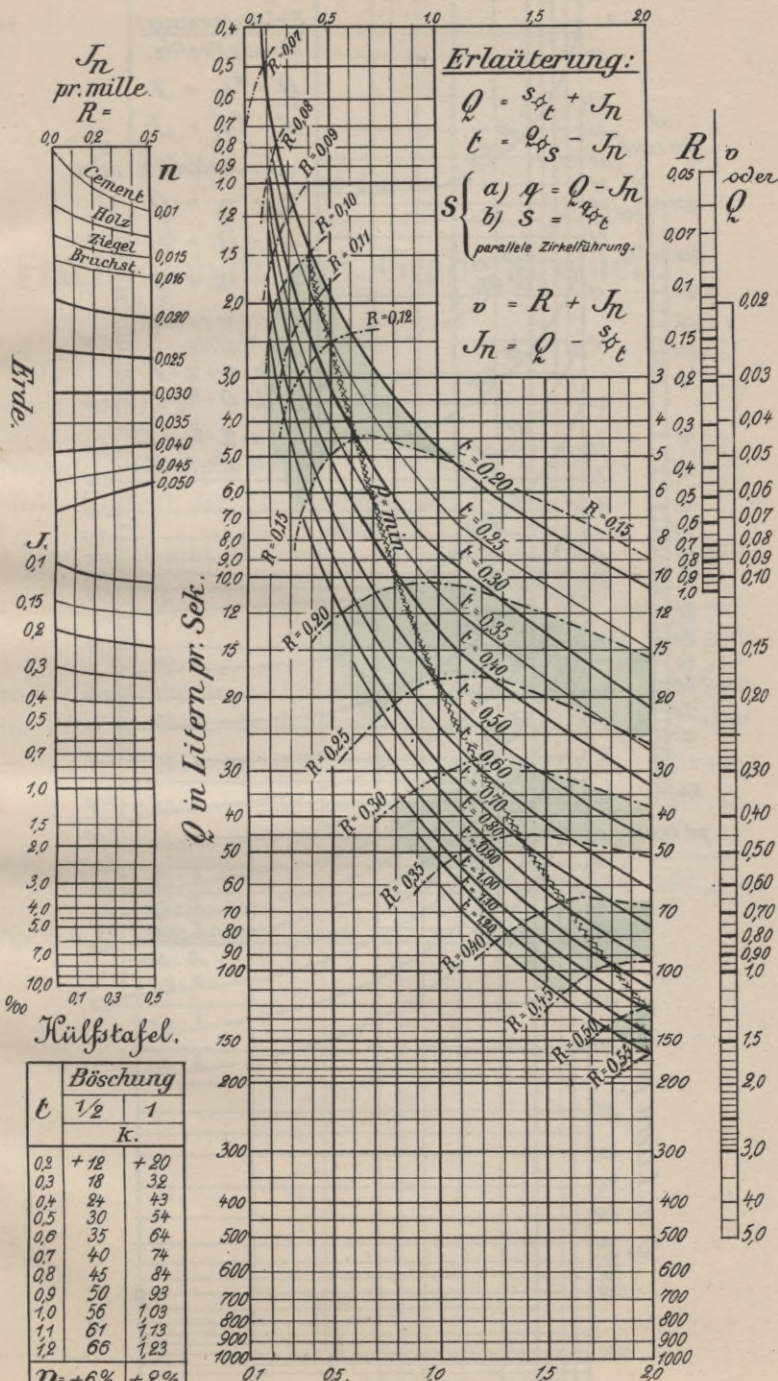 Jn
pr. mille.
R =
0,0 0,2 0,5
n
Cement
0,01
Holz
Ziegel
0,015
Bruchst.
0,016
0,020
0,025
0,030
0,035
0,040
0,045
0,050
Erde.
J.
0,1
0,15
0,2
0,3
0,4
0,5
0,7
1,0
1,5
2,0
3,0
4,0
5,0
7,0
10,0
0/00
0,1 0,3 0,5
Hülfstafel.
t
Böschung
1/2 1
k.
0,2 +12 +20
0,3 18 32
0,4 24 43
0,5 30 54
0,6 35 64
0,7 40 74
0,8 45 84
0,9 50 93
1,0 56 1,03
1,1 61 1,13
1,2 66 1,23
Q in Litern pr. Sek.
0,1 0,5 1,0 2,0
0,4
0,5
0,6
0,7
0,8
0,9
1,0
1,2
1,5
2,0
3,0
4,0
5,0
6,0
7,0
8,0
9,0
10,0
12
15
20
30
40
50
60
70
80
90
100
150
200
300
400
500
600
700
800
900
1000
R=0,07
R=0,08
R=0,09
R=0,10
R=0,11
R=0,12
R=0,15
R=0,15
R=0,20
R=0,25
R=0,30
R=0,35
R=0,40
R=0,45
R=0,50
R=0,55
P=min
t=0,20
t=0,25
t=0,30
t=0,35
t=0,40
t=0,50
t=0,60
t=0,70
t=0,80
t=0,90
t=1,00
t=1,10
t=1,20
Erlaüterung:
parallele Zirkelführung.
v = R + Jn
3
4
5
6
8
10
12
15
20
30
40
50
60
70
80
90
100
150
200
300
400
500
600
700
800
900
1000
0,1 0,5 1,0 1,5 2,0
R
0,05
0,07
0,1
0,15
0,2
0,3
0,4
0,5
0,6
0,7
0,8
0,9
1,0
v
oder
Q
0,02
0,03
0,04
0,05
0,06
0,07
0,08
0,09
0,10
0,15
0,20
0,30
0,40
0,50
0,60
0,70
0,80
0,90
1,0
1,5
2,0
3,0
4,0
5,0